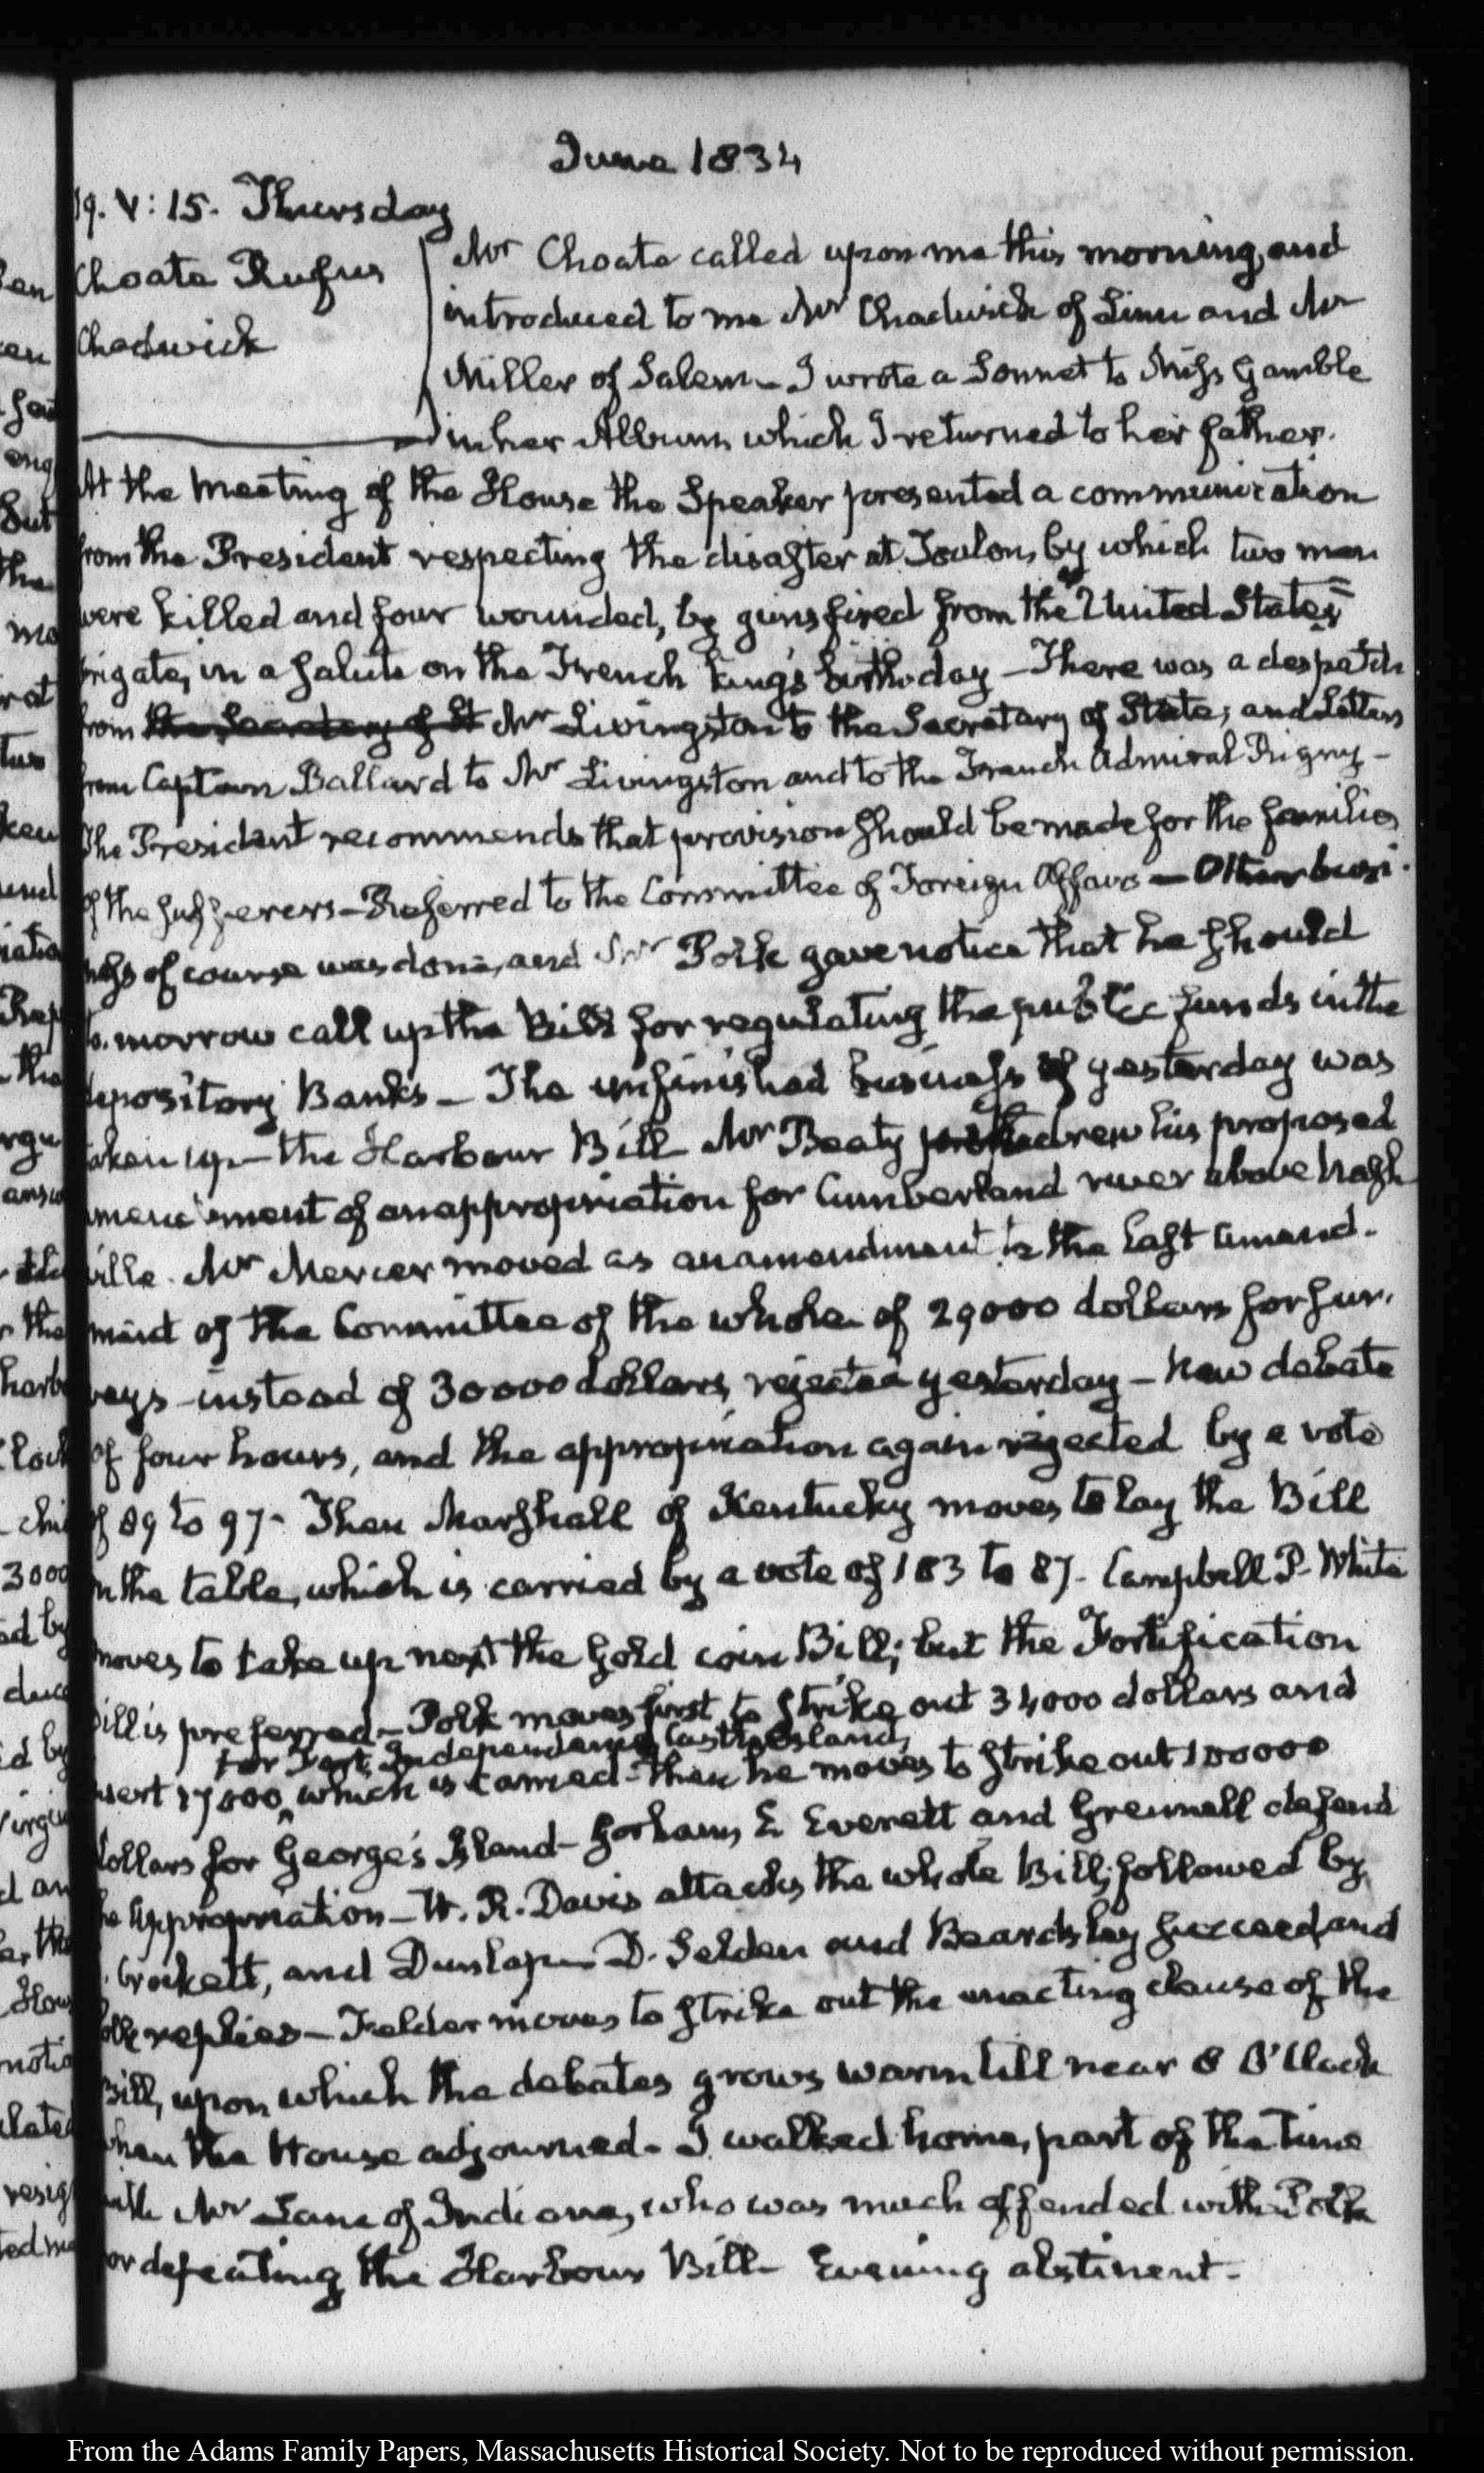 June 1834
19. V:15. Thursday
Choate Rufus
Chadwick
Mr Choate called upon me this morning, and
introduced to me Mr Chadwick of Linn and Mr
Miller of Salem – I wrote a Sonnet to Miss Gamble
in her Album which I returned to her father.
At the meeting of the House the Speaker presented a communication
from the President respecting the disaster at Toulon, by which two men
were killed and four wounded, by guns fired from the United States
frigate, in a salute on the French king's birth-day – There was a despatch
from the Secretary of St Mr Livingston to the Secretary of State; and Letters
from Captain Ballard to Mr Livingston and to the French Admiral Rigny –
The President recommends that provision should be made for the families
of the sufferers – Referred to the Committee of Foreign Affairs – Other busi-
ness of course was done, and Mr Polk gave notice that he should
to-morrow call up the Bill for regulating the public funds in the
depository Banks – The unfinished business of yesterday was
taken up – the Harbour Bill Mr Beaty drew his proposed
amendment of an appropriation for Cumberland river above Nash
ville. Mr Mercer moved as an amendment to the last amend-
ment of the Committee of the whole of 29000 dollars for sur-
veys instead of 30000 dollars, rejected yesterday – New debate
of four hours, and the appropriation again rejected by a vote
of 89 to 97 – Then Marshall of Kentucky moves to lay the Bill
on the table, which is carried by a vote of 103 to 87 – Campbell P. White
moves to take up next the Gold coin Bill; but the Fortification
Bill is preferred – Polk moves first to strike out 34000 dollars and
for Fort Independence, Castle Island,
insert 17000, which is carried – then he moves to strike out 100000
dollars for George's Island – Gorham, E Everett and Grennell defend
the Appropriation – W. R. Davis attacks the whole Bill; followed by
Crockett, and Dunlap – D. Selden and Beardsley succeed, and
Polk replies – Felder moves to strike out the enacting clause of the
Bill, upon which the debates grows warm till near 8 O'Clock
when the House adjourned – I walked home, part of the time
with Mr Lane of Indiana, who was much offended with Polk
for defeating the Harbour Bill – Evening abstinent –
From the Adams Family Papers, Massachusetts Historical Society. Not to be reproduced without permission.